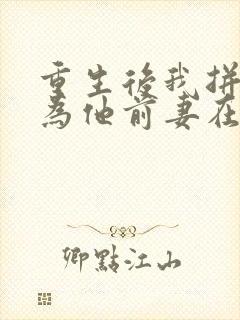 重生後我拼
為他前妻在
卿點江山